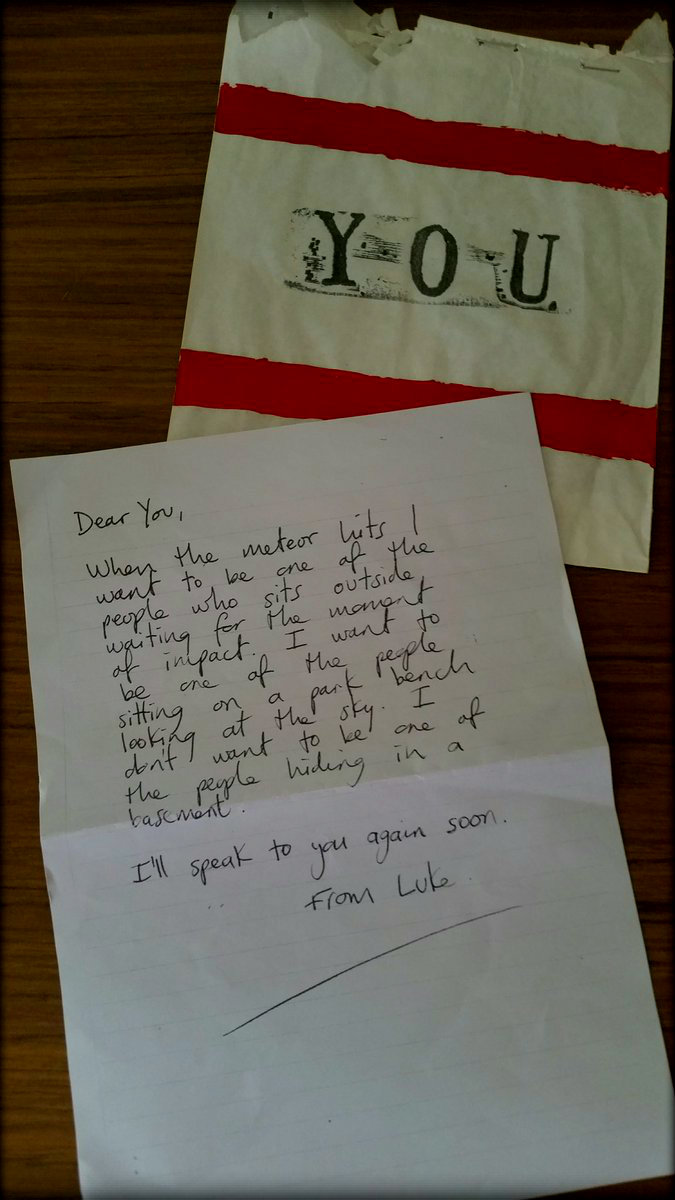 YOU
Dear You,
When the meteor hits I
want to be one of the
people who sits outside
waiting for the moment
of impact. I want to
be one of the people
sitting on a park bench
looking at the sky. I
don't want to be one of
the people hiding in a
basement.
I'll speak to you again soon.
From Luke.